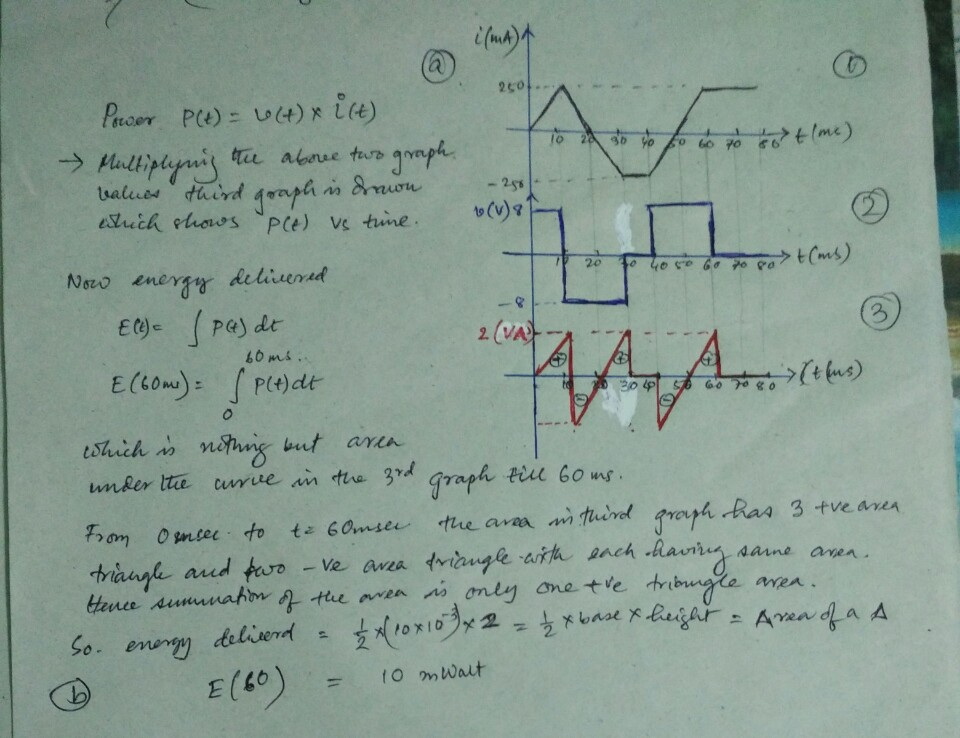 ⓐ
Power P(t) = v(t) x i(t)
→ Multiplynig the above two graph.
values third graph is drawn
which shows P(t) vs time.
Now energy delivered
E(t) = ∫ P(t) dt
E(60ms) = ∫₀^60ms.. P(t)dt
which is nothing but area
under the curve in the 3rd graph till 60 ms.
From 0 msec. to t= 60msec the area in third graph has 3 +ve area
triangle and two -ve area triangle with each having same area.
Hence summation of the area is only one +ve triangle area.
So. energy deliverd = 1/2 x (10x10^-3) x 2 = 1/2 x base x height = Area of a Δ
ⓑ E(60) = 10 mWatt
i(mA)
①
250
10 20 30 40 50 60 70 80 t(ms)
-250
v(V) 8
②
10 20 30 40 50 60 70 80 t(ms)
-8
③
2 (VA)
+ + +
10 20 30 40 50 60 70 80 (t(ms)
- -